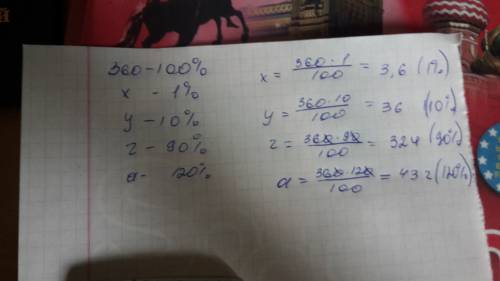 360 - 100%
x - 1%
y - 10%
z - 90%
a - 120%
x = 360·1/100 = 3,6 (1%)
y = 360·10/100 = 36 (10%)
z = 360·90/100 = 324 (90%)
a = 360·120/100 = 432 (120%)